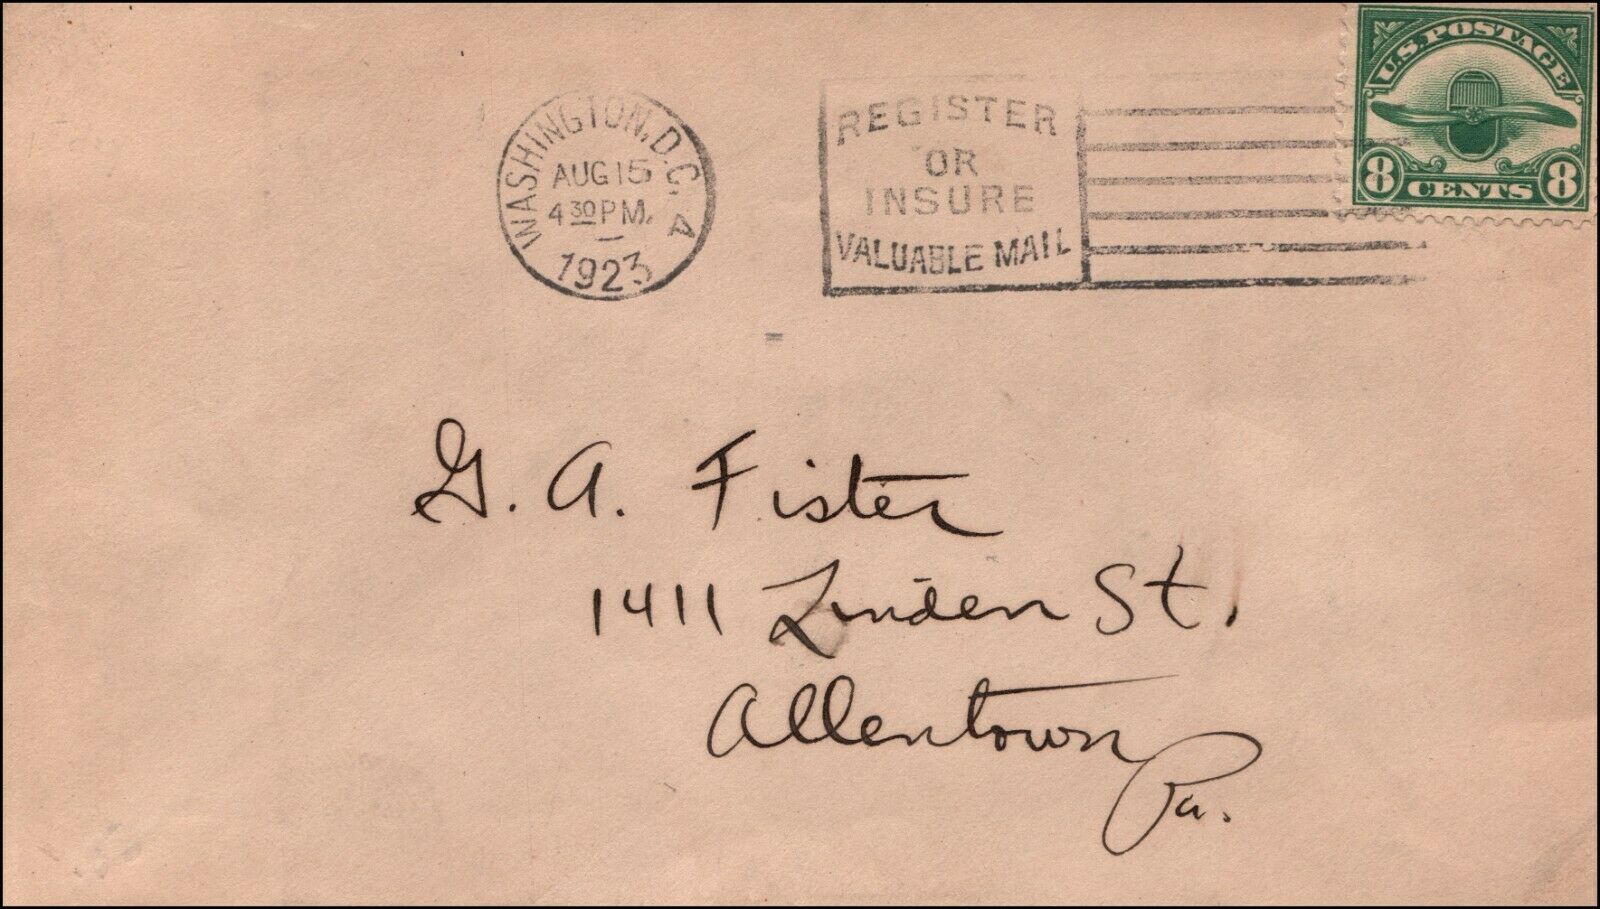 U.S. POSTAGE
8 CENTS 8
WASHINGTON, D.C. 4
AUG 15
4 30 PM.
1923
REGISTER
OR
INSURE
VALUABLE MAIL
G. A. Fister
1411 Linden St.
Allentown
Pa.